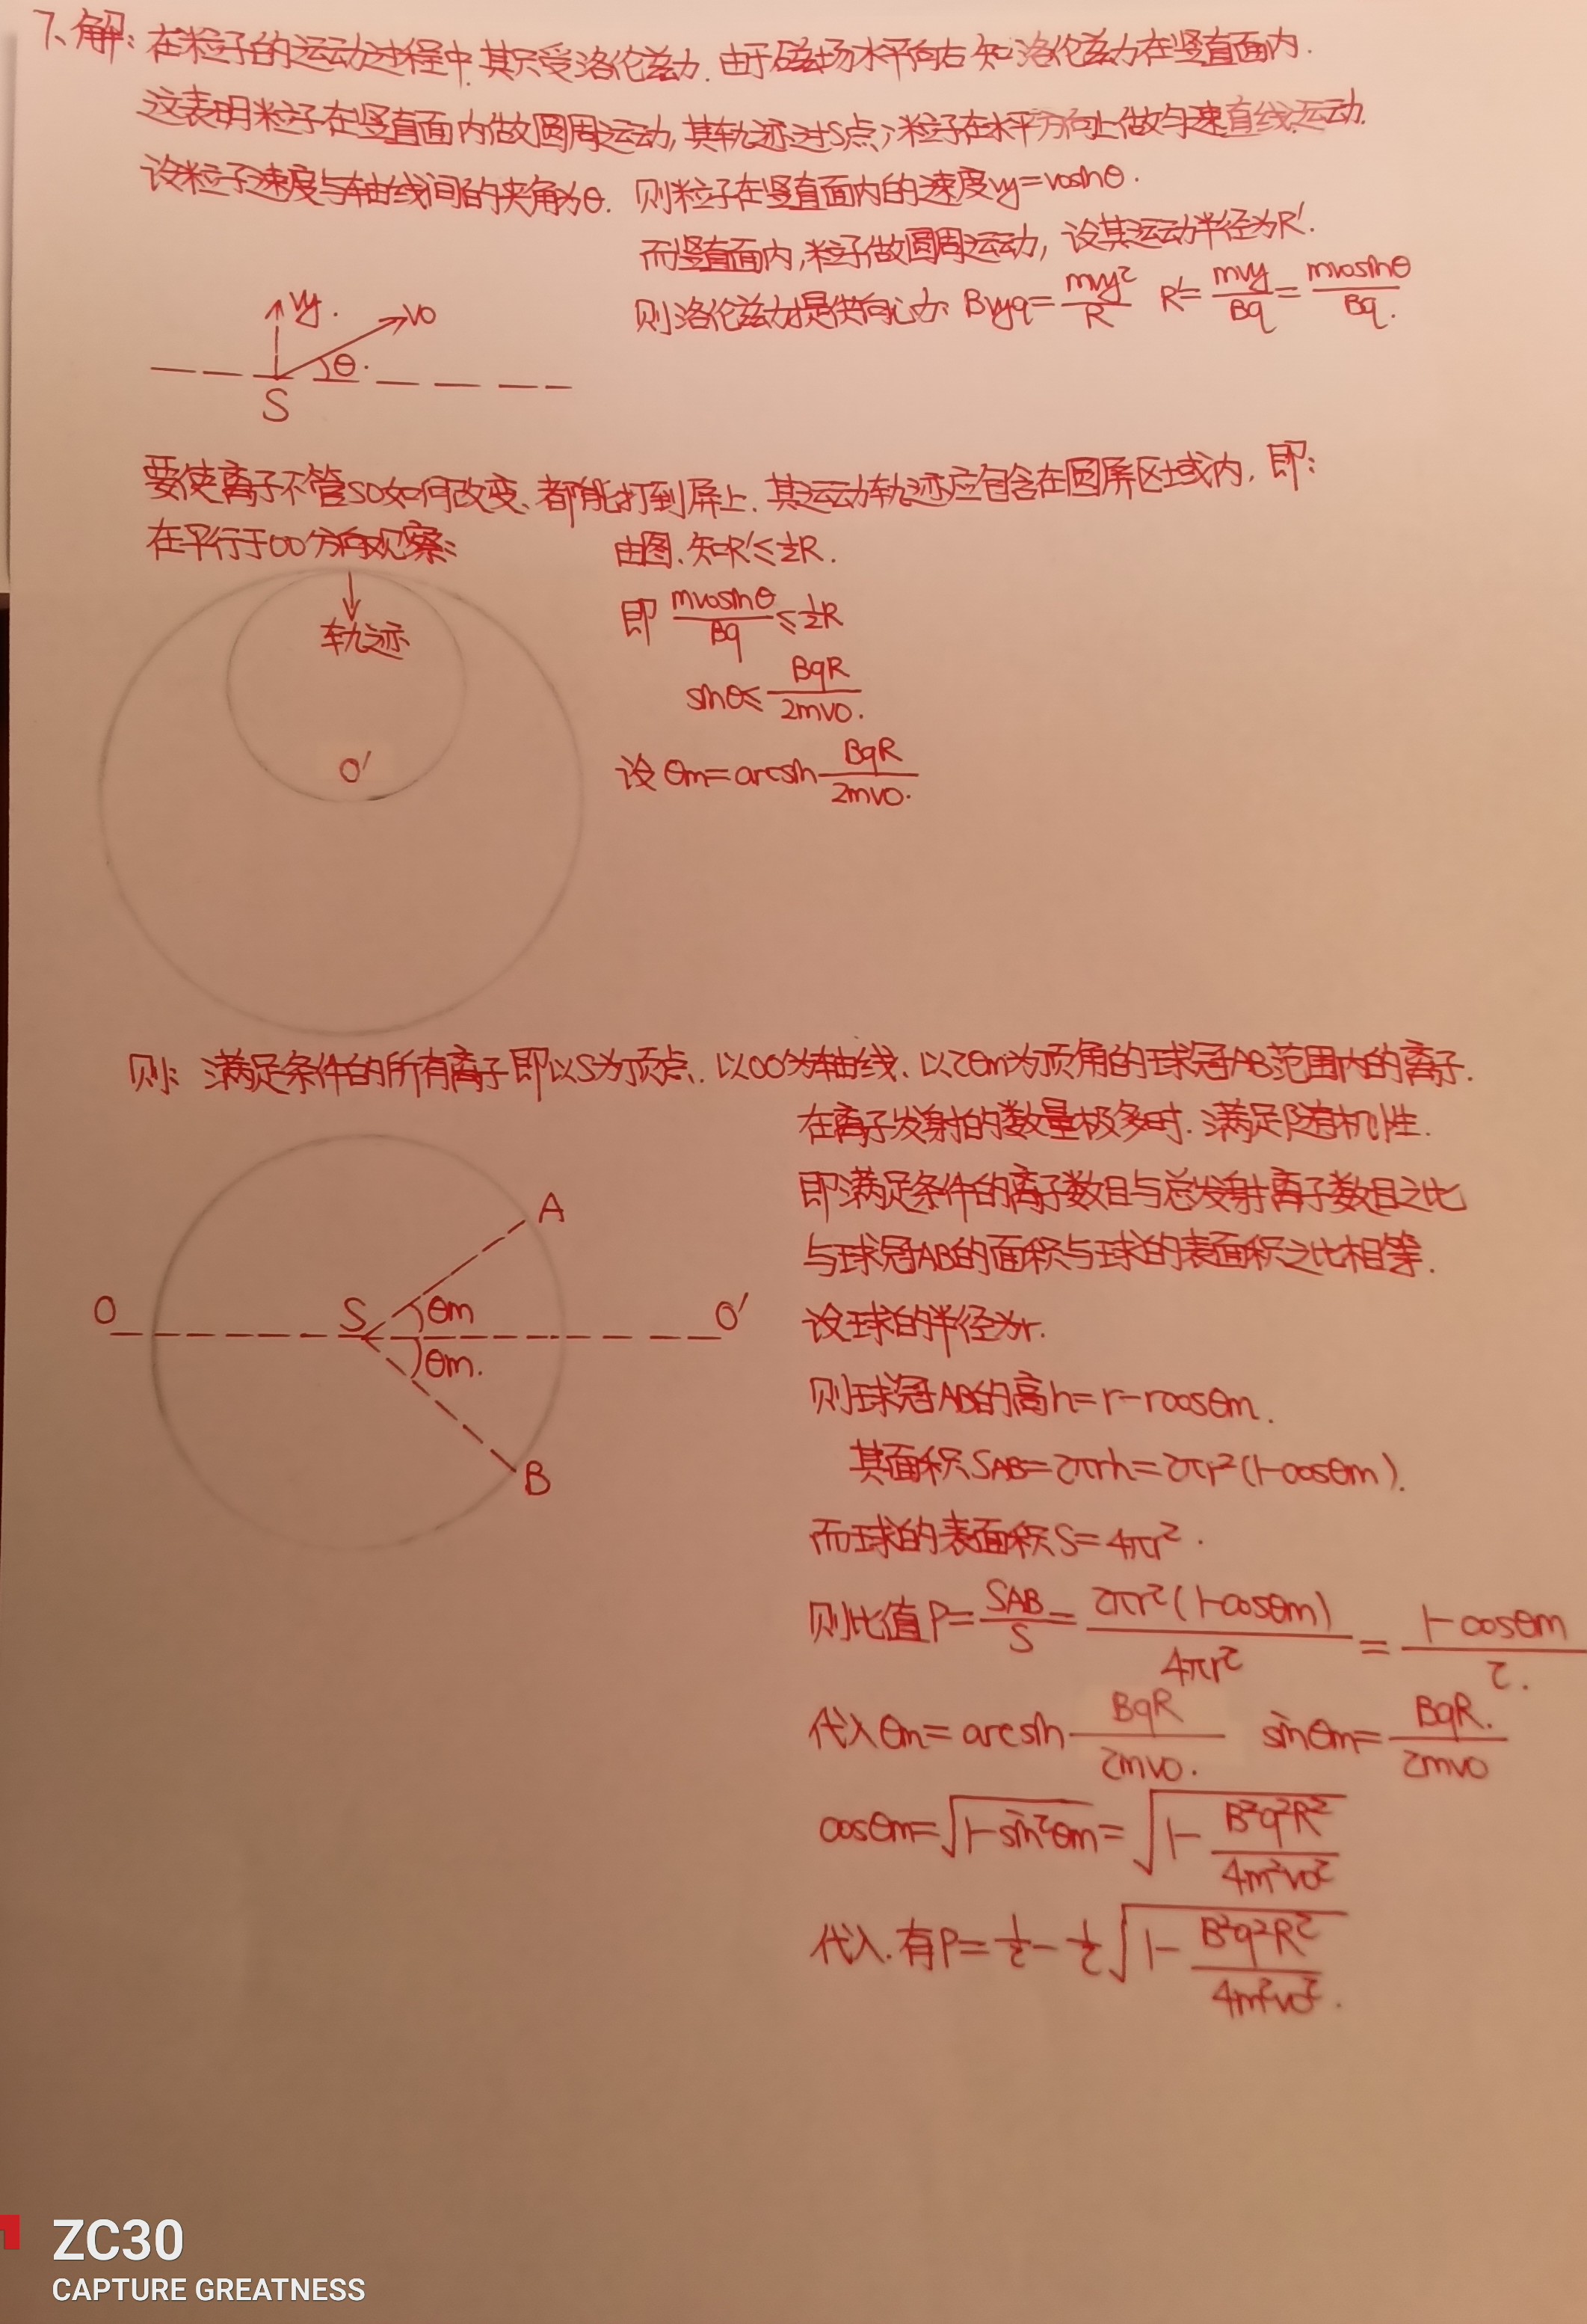 7、解：在粒子的运动过程中，其只受洛伦兹力．由于磁场水平向右知洛伦兹力在竖直面内．
这表明粒子在竖直面内做圆周运动，其轨迹过S点；粒子在水平方向上做匀速直线运动．
设粒子速度与轴线间的夹角为θ．则粒子在竖直面内的速度vy=v0sinθ．
而竖直面内，粒子做圆周运动，设其运动半径为R'．
则洛伦兹力提供向心力：Bvyq=mvy²/R R'=mvy/Bq=mv0sinθ/Bq．
vy． v0
θ．
S
要使离子不管SO如何改变、都能打到屏上．其运动轨迹应包含在圆屏区域内，即：
在平行于OO'方向观察：
由图、知R'≤½R．
轨迹
O'
即 mv0sinθ/Bq≤½R
sinθ≤BqR/2mv0．
设θm=arcsin BqR/2mv0．
则：满足条件的所有离子即以S为顶点、以OO'为轴线、以2θm为顶角的球冠AB范围内的离子．
在离子发射的数量极多时．满足随机性．
即满足条件的离子数目与总发射离子数目之比
与球冠AB的面积与球的表面积之比相等．
A
O S θm O'
θm．
B
设球的半径为r．
则球冠AB的高h=r-rcosθm．
其面积SAB=2πrh=2πr²(1-cosθm)．
而球的表面积S=4πr²．
则比值P=SAB/S=2πr²(1-cosθm)/4πr²=1-cosθm/2．
代入θm=arcsin BqR/2mv0． sinθm=BqR．/2mv0
cosθm=√1-sin²θm=√1-B²q²R²/4m²v0²
代入．有P=½-½√1-B²q²R²/4m²v0²．
ZC30
CAPTURE GREATNESS